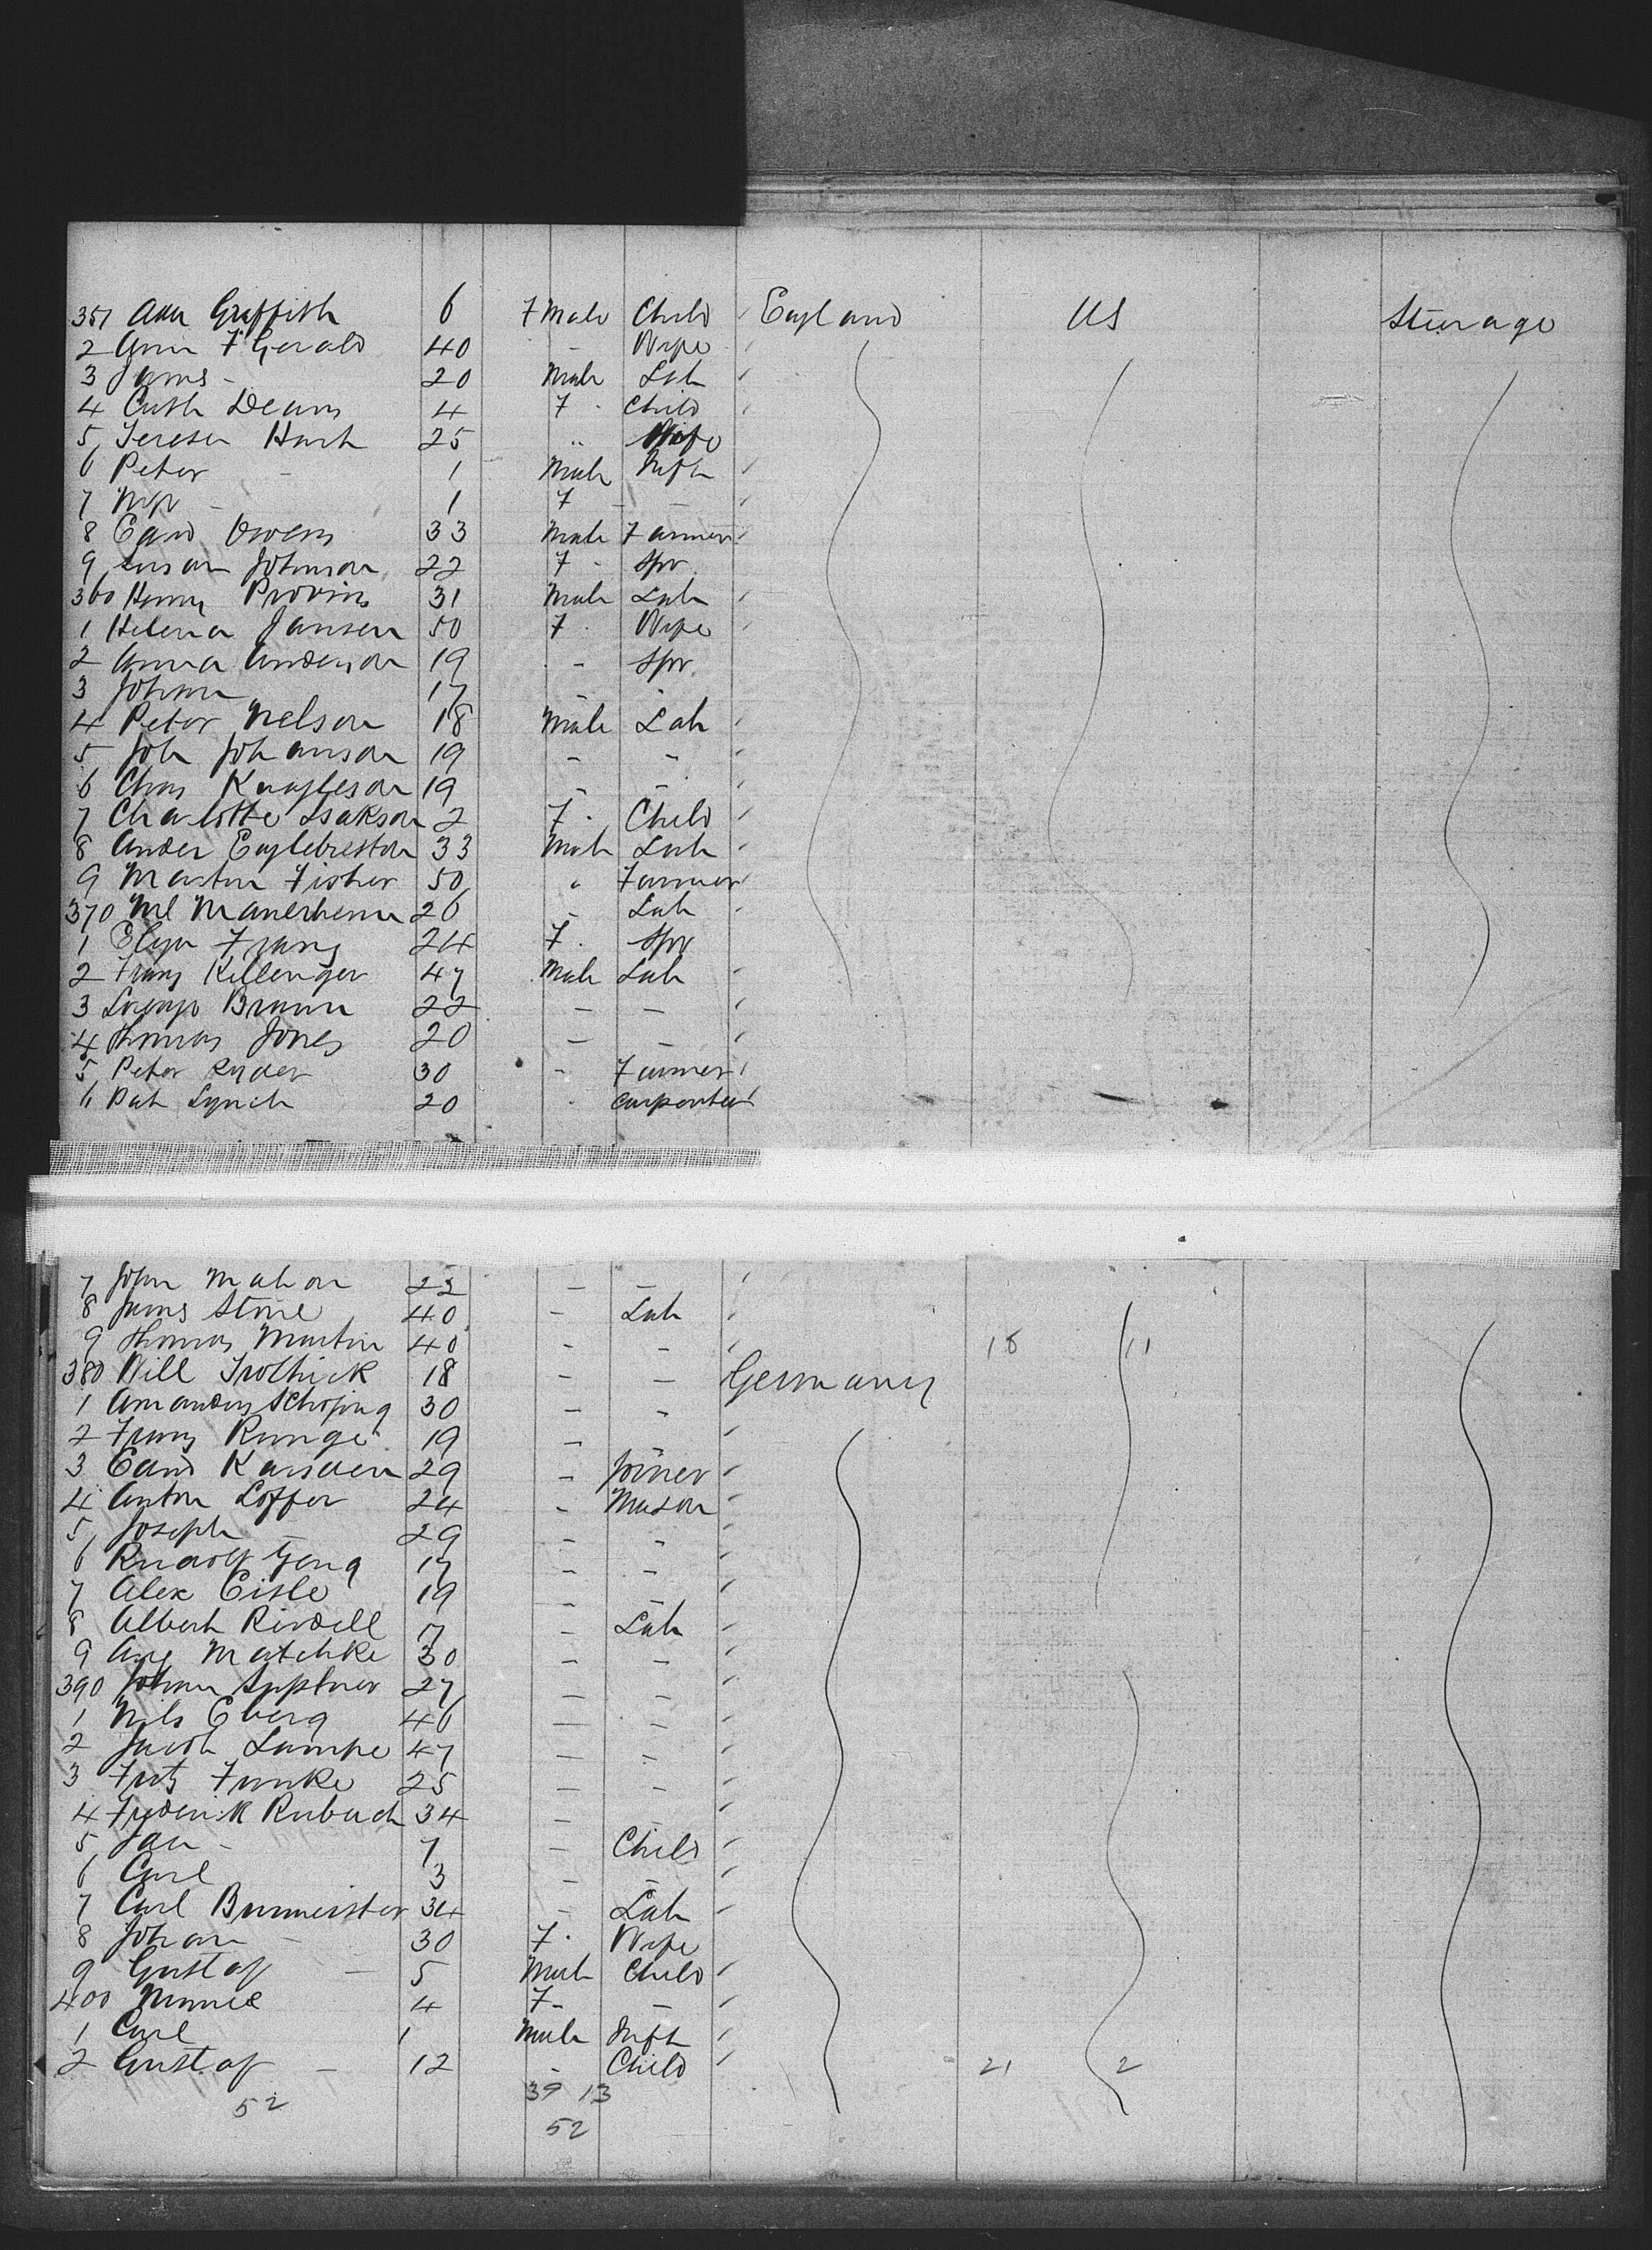 351 Ada Griffith 6 F Male Child England US Steerage
2 Ann F Gerald 40 - Wife
3 James - 20 Male Lab
4 Cath Deans 4 F - Child
5 Teresa Hart 25 " Wife
6 Peter - 1 Male Inft
7 - 1 F - -
8 Edwd Owens 33 Male Farmer
9 Susan Johnson 22 F - Spr
360 Henry Provins 31 Male Lab
1 Helena Jansen 50 F - Wife
2 Anna Anderson 19 - Spr
3 Johan 17 - -
4 Peter Nelson 18 Male Lab
5 Joh Johanson 19 - "
6 Chas 19 - -
7 Charlotte Isakson 2 F - Child
8 Ander Englebreston 33 Male Lab
9 Martin Fisher 50 " Farmer
370 Ml Manerheim 26 - Lab
1 Franz 24 F - Spr
2 Franz Killenger 47 Male Lab
3 Braun 22 - -
4 Thomas Jones 20 - -
5 Peter Ryder 30 - Farmer
6 Pat Lynch 20 - Carpenter
7 John Mahon 23 - -
8 James Stone 40 - Lab
9 Thomas Martin 40 - - 18 11
380 Will 18 - - Germany
1 30 - "
2 Franz Runge 19 -
3 Edwd Karsden 29 - Joiner
4 Anton Loffer 24 - Mason
5 Joseph - 29 - "
6 Rudolf 17 - -
7 Alex Eisle 19 - -
8 Albert Rindell 7 - Lab
9 Aug Matchke 30 - -
390 Johan 27 - -
1 Nils Eberg 46 - -
2 Jacob Lampe 47 - -
3 Fritz Funke 25 - -
4 Frederik Rubach 34 - -
5 Jan - 7 - Child
6 Carl 3 - -
7 Carl Burmeister 34 - Lab
8 Johan - 30 F - Wife
9 Gustaf - 5 Male Child
400 Minnie 4 F - -
1 Carl 1 Male Inft
2 Gustaf - 12 - Child 21 2
52 39 13
52